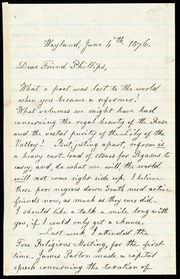 Wayland, June 4th, 1876.
Dear Friend Phillips,
What a poet was lost to the world
when you became a reformer!
What volumes we might have had
concerning the regal beauty of the Rose
and the vestal purity of the Lily of the
Valley! But, jesting apart, reform is
a heavy cart-load of stones for Pegasus to
carry; and, do what we will, the world
will not come right side up. I believe
those poor negroes down South need active
friends now, as much as they ever did.
I should like to talk a mile long with
you, if I could only get a chance.
Last week I attended the
Free Religious Meeting, for the first
time. James Parton made a capital
speech concerning the taxation of